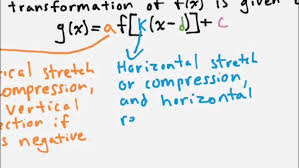 transformation of f(x) is given
g(x) = a f[k(x-d)] + c
tical stretch
ompression,
vertical
ection if
s negative
Horizontal stretch
or compression,
and horizontal
r